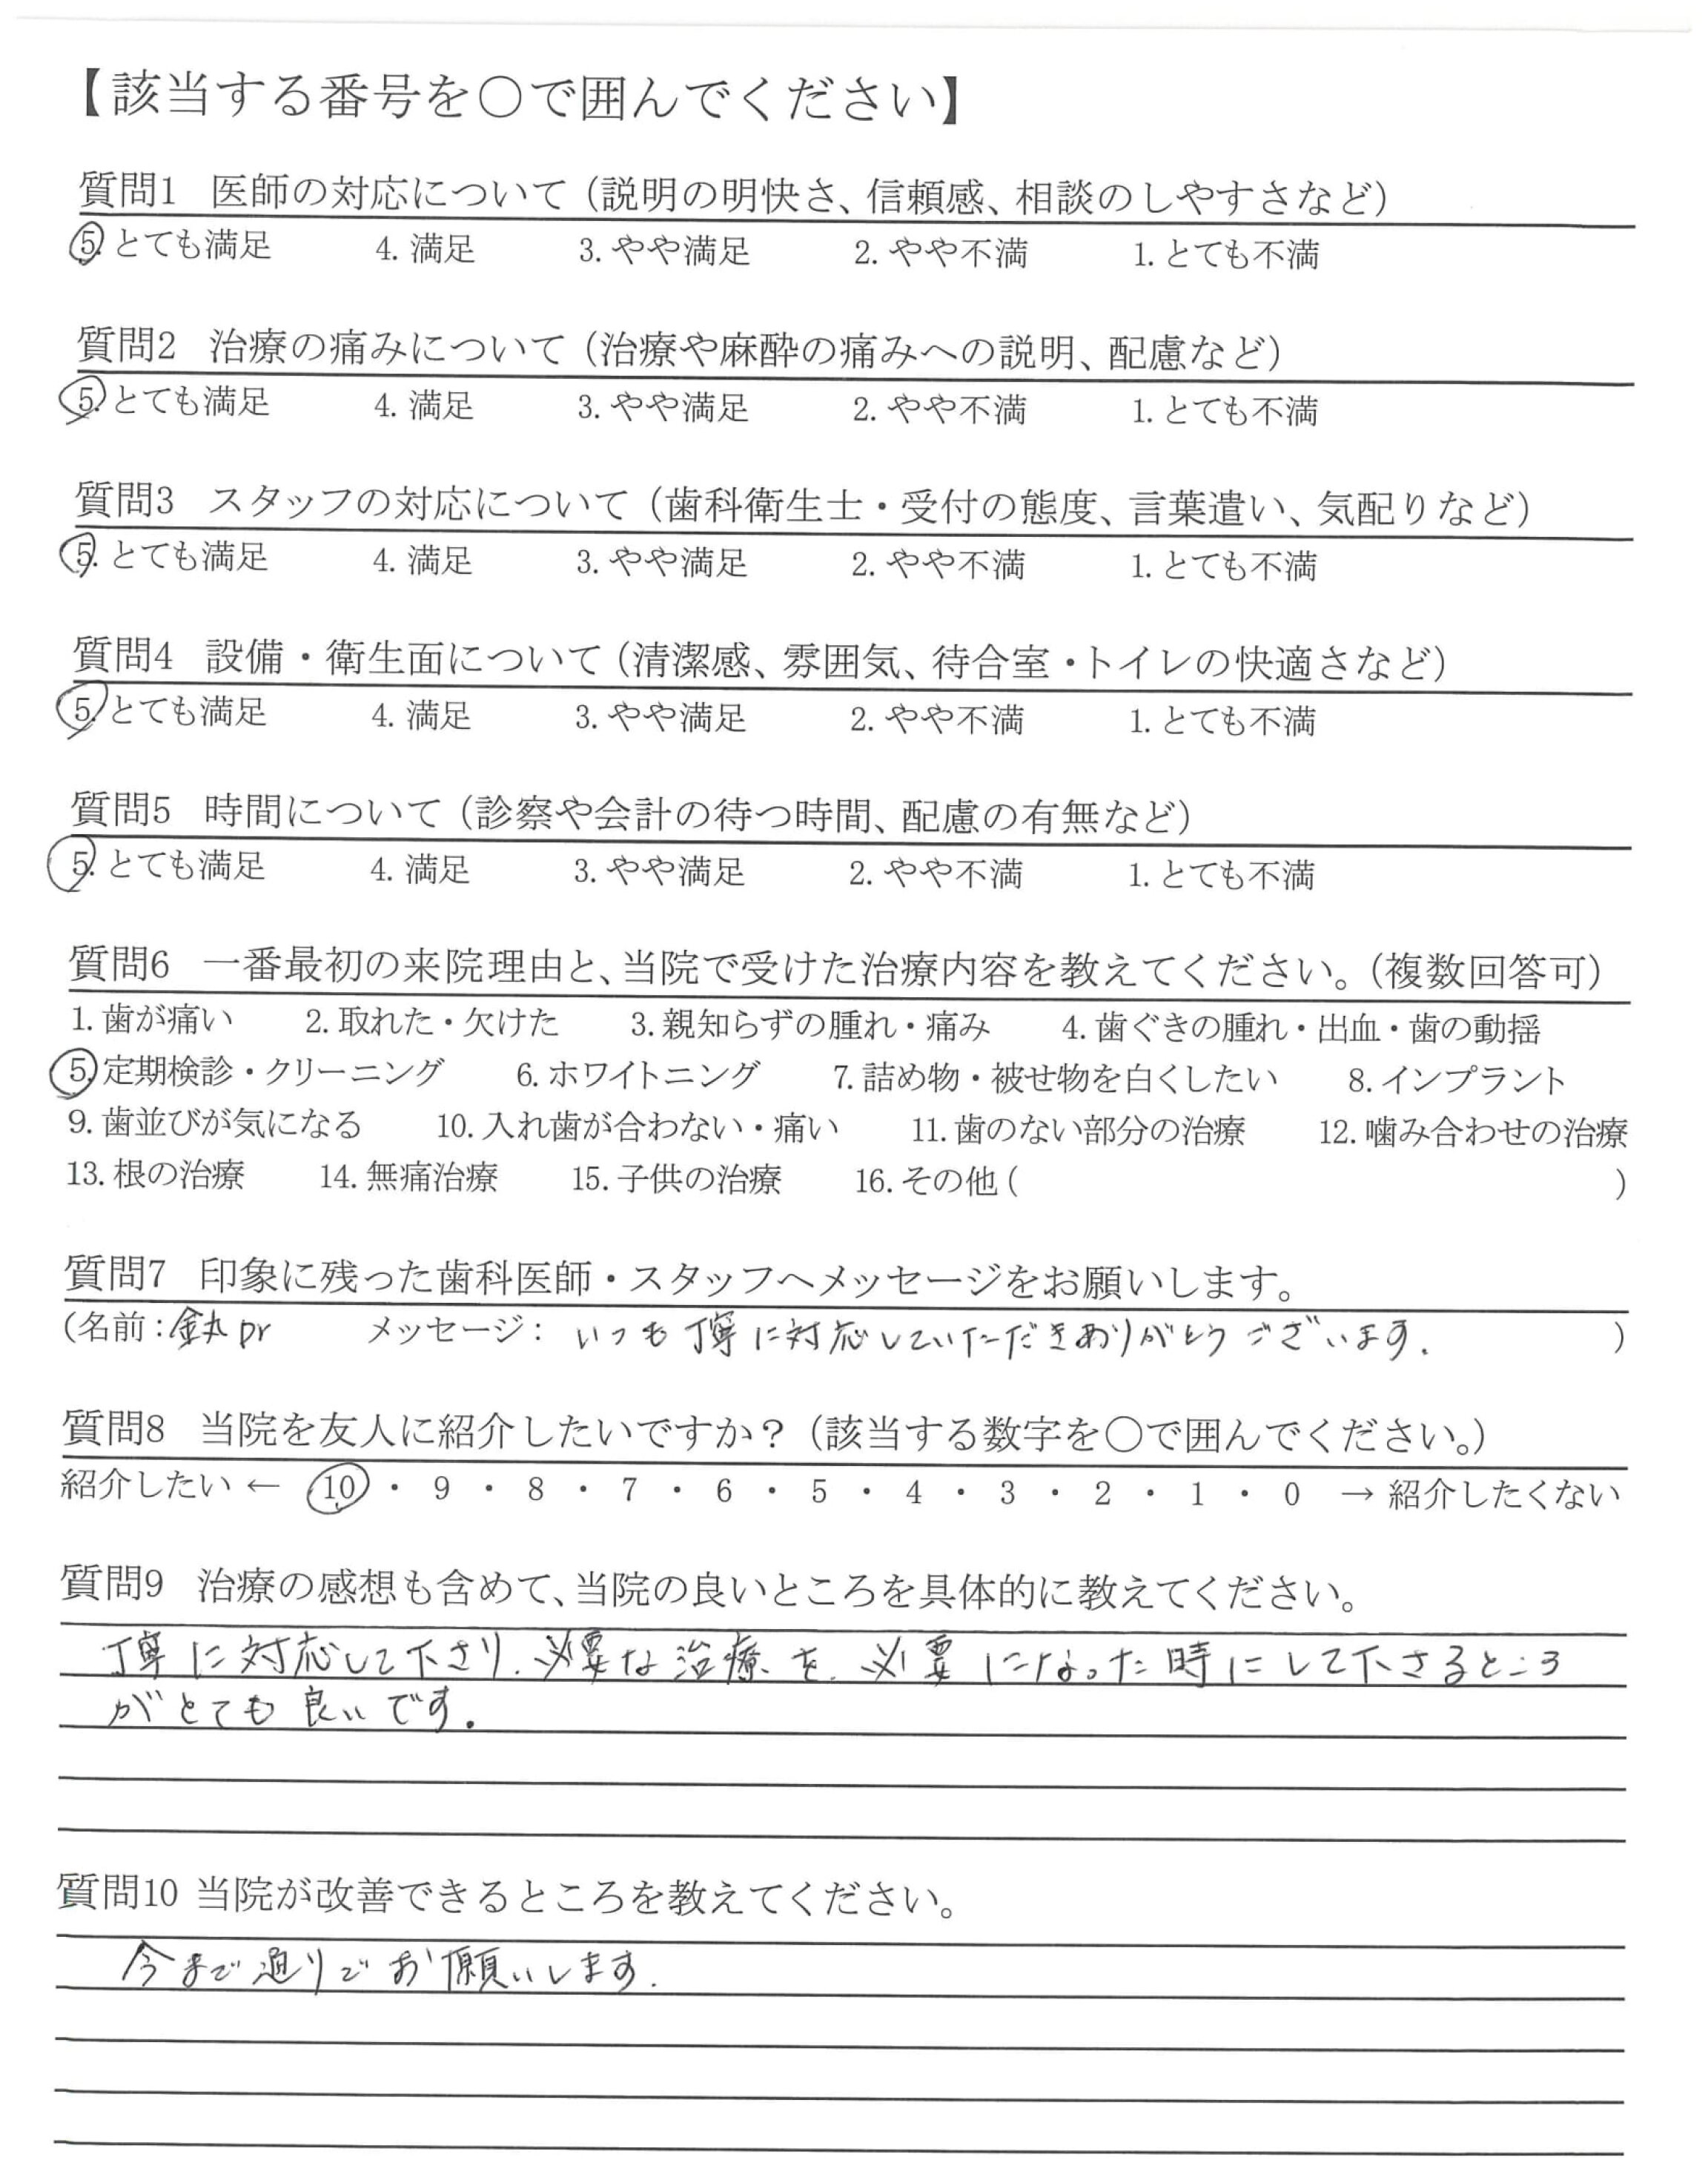 【該当する番号を○で囲んでください】
質問1 医師の対応について（説明の明快さ、信頼感、相談のしやすさなど）
5. とても満足 4. 満足 3. やや満足 2. やや不満 1. とても不満
質問2 治療の痛みについて（治療や麻酔の痛みへの説明、配慮など）
5. とても満足 4. 満足 3. やや満足 2. やや不満 1. とても不満
質問3 スタッフの対応について（歯科衛生士・受付の態度、言葉遣い、気配りなど）
5. とても満足 4. 満足 3. やや満足 2. やや不満 1. とても不満
質問4 設備・衛生面について（清潔感、雰囲気、待合室・トイレの快適さなど）
5. とても満足 4. 満足 3. やや満足 2. やや不満 1. とても不満
質問5 時間について（診察や会計の待つ時間、配慮の有無など）
5. とても満足 4. 満足 3. やや満足 2. やや不満 1. とても不満
質問6 一番最初の来院理由と、当院で受けた治療内容を教えてください。（複数回答可）
1. 歯が痛い 2. 取れた・欠けた 3. 親知らずの腫れ・痛み 4. 歯ぐきの腫れ・出血・歯の動揺
5. 定期検診・クリーニング 6. ホワイトニング 7. 詰め物・被せ物を白くしたい 8. インプラント
9. 歯並びが気になる 10. 入れ歯が合わない・痛い 11. 歯のない部分の治療 12. 噛み合わせの治療
13. 根の治療 14. 無痛治療 15. 子供の治療 16. その他（ ）
質問7 印象に残った歯科医師・スタッフへメッセージをお願いします。
（名前：金丸Dr メッセージ： いつも丁寧に対応していただきありがとうございます. ）
質問8 当院を友人に紹介したいですか？（該当する数字を○で囲んでください。）
紹介したい ← 10 ・ 9 ・ 8 ・ 7 ・ 6 ・ 5 ・ 4 ・ 3 ・ 2 ・ 1 ・ 0 → 紹介したくない
質問9 治療の感想も含めて、当院の良いところを具体的に教えてください。
丁寧に対応して下さり、必要な治療を、必要になった時にして下さるところ
がとても良いです.
質問10 当院が改善できるところを教えてください。
今まで通りでお願いします.